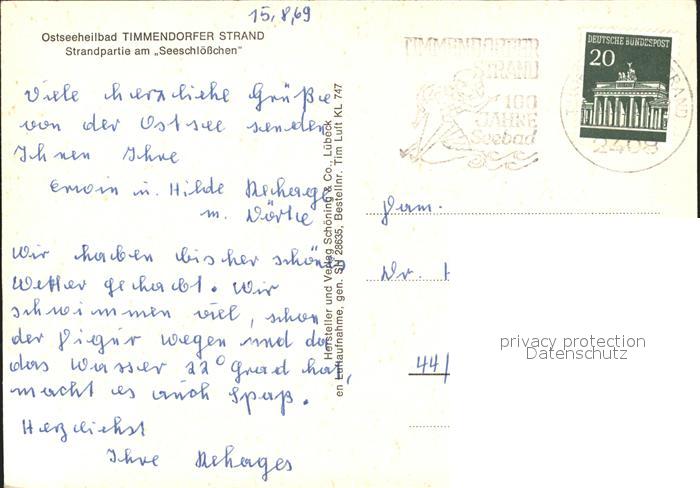 15.8.69
Ostseeheilbad TIMMENDORFER STRAND
Strandpartie am „Seeschlößchen"
Viele herzliche Grüße
von der Ostsee senden
Ihnen Ihre
Erwin u. Hilde Rehage
m. Dörte
Wir haben bisher schönes
Wetter gehabt. Wir
schwimmen viel, schon
der Figur wegen und da
das Wasser 22° Grad hat,
macht es auch Spaß.
Herzlichst
Ihre Rehages
Hersteller und Verlag Schöning & Co., Lübeck
en Luftaufnahme, gen. SH 28635, Bestellnr. Tim Luft KL 747
TIMMENDORFER
STRAND
100
JAHRE
Seebad
DEUTSCHE BUNDESPOST
20
2408
Fam.
Dr.
44
privacy protection
Datenschutz